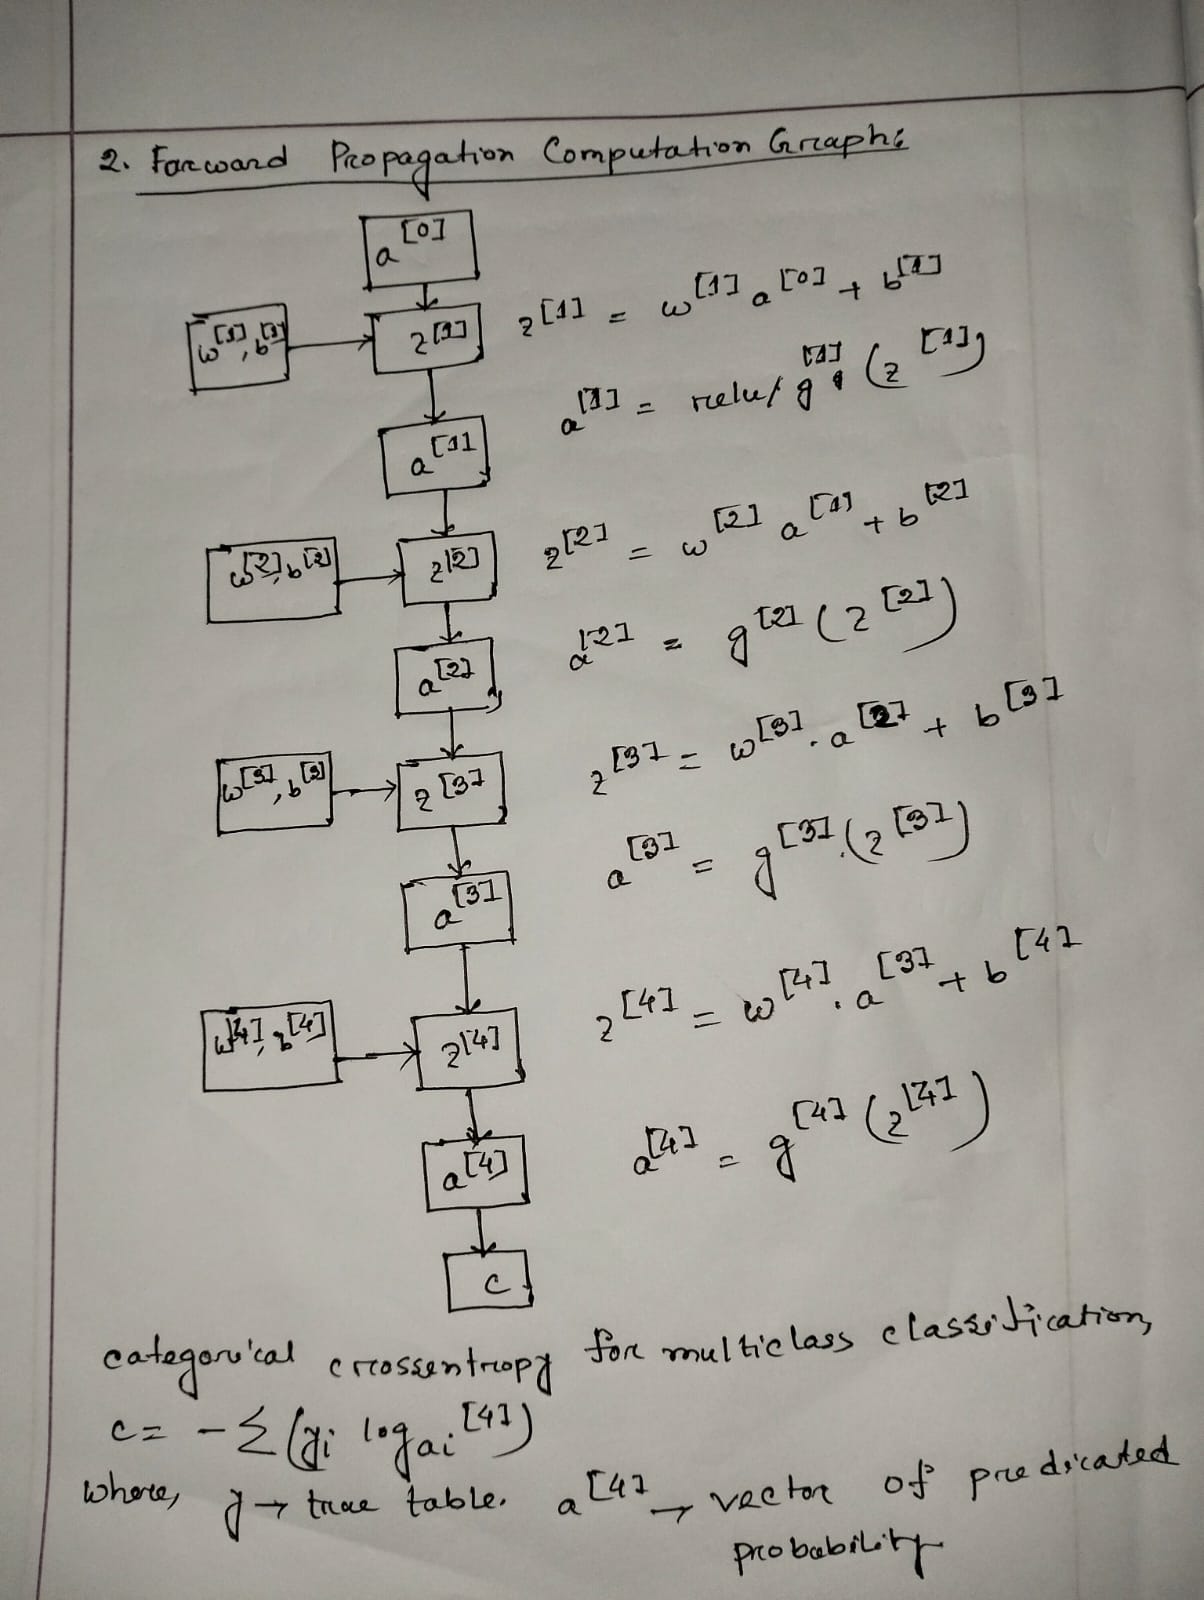 2. Forward Propagation Computation Graph:
a^[0]
w^[1], b^[1]
z^[1]
z^[1] = w^[1] a^[0] + b^[1]
a^[1] = relu/ g^[1] (z^[1])
a^[1]
w^[2], b^[2]
z^[2]
z^[2] = w^[2] a^[1] + b^[2]
a^[2]
a^[2] = g^[2] (z^[2])
w^[3], b^[3]
z^[3]
z^[3] = w^[3] . a^[2] + b^[3]
a^[3]
a^[3] = g^[3] . (z^[3])
w^[4], b^[4]
z^[4]
z^[4] = w^[4] . a^[3] + b^[4]
a^[4]
a^[4] = g^[4] (z^[4])
c
categorical crossentropy for multiclass classification,
c = - Σ (yi log ai^[4])
where, y → true table. a^[4] → vector of predicated
probability